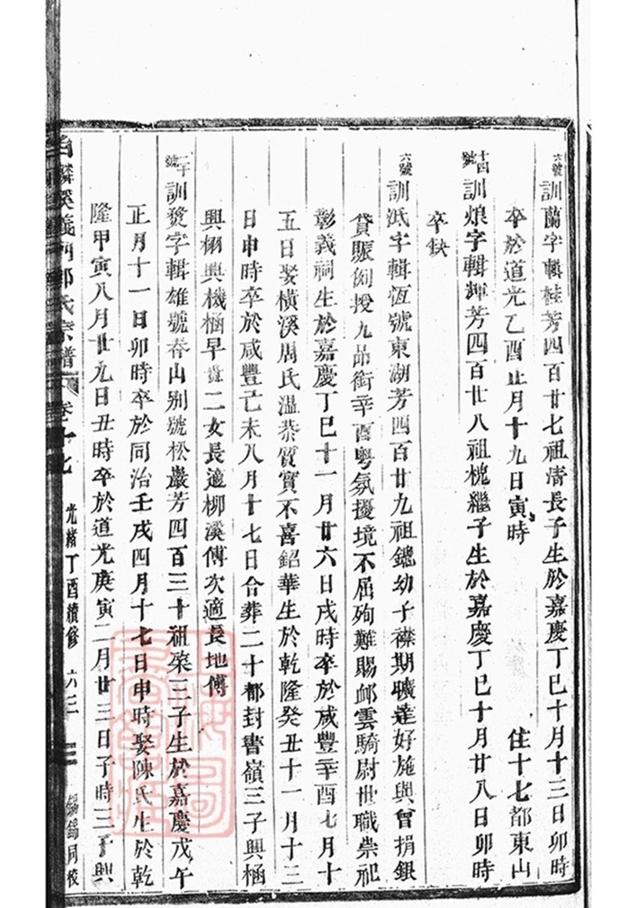 六號
訓蘭字輯桂芳四百廿七祖清長子生於嘉慶丁巳十月十三日卯時
卒於道光乙酉正月十九日寅時 住十七都東山
十四號
訓烺字輯輝芳四百廿八祖槐繼子生於嘉慶丁巳十月廿八日卯時
卒缺
六號
訓泜字輯恆號東湖芳四百廿九祖鐿幼子襟期曠達好施與曾捐銀
貸賑例授九品銜辛酉粵氛擾境不屈殉難賜卹雲騎尉世職崇祀
彰義祠生於嘉慶丁巳十一月廿六日戌時卒於咸豐辛酉七月十
五日娶橫溪周氏溫恭質實不喜鉛華生於乾隆癸丑十一月十三
日申時卒於咸豐己未八月十七日合葬二十都封書嶺三子興楅
興棚興機楅早世二女長適柳溪傅次適長地傅
二十號
訓燹字輯雄號春山別號松巖芳四百三十祖燊三子生於嘉慶戊午
正月十一日卯時卒於同治壬戌四月十七日申時娶陳氏生於乾
隆甲寅八月廿九日丑時卒於道光庚寅二月廿三日子時三子興
麟溪義門鄭氏宗譜 卷十七 光緒丁酉續修 六三 同校